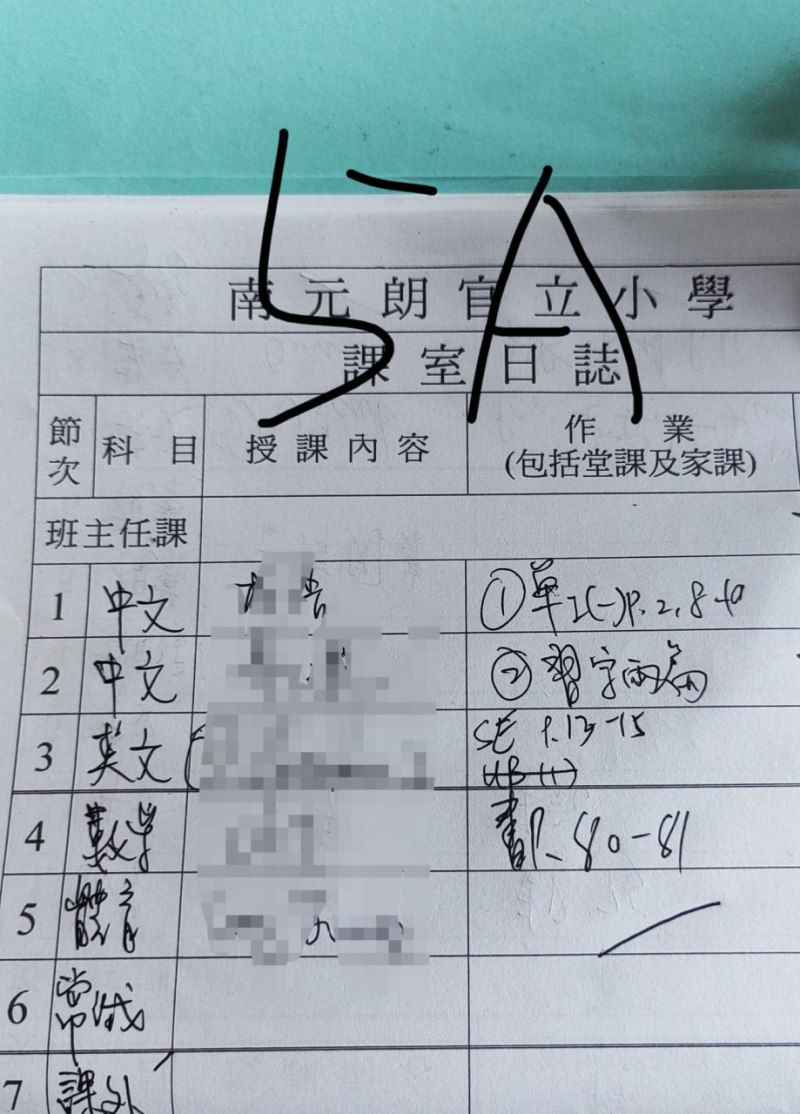 5A
南元朗官立小學
課室日誌
節次 科目 授課內容 作業
(包括堂課及家課)
班主任課
1 中文 ①單工(一)P.2,8-10
2 中文 ②習字兩篇
3 英文 SE P.13-15
4 數學 書P.80-81
5 體育
6 常識
7 課外